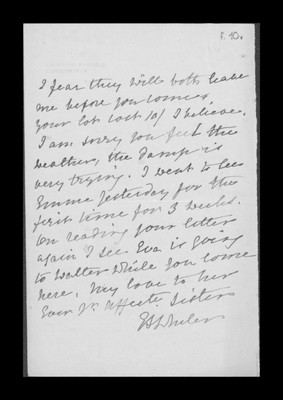 f. 40v
I fear they will both leave
me before you come,
your cot cost 10/ I believe.
I am sorry you feel the
weather, the damp is
very trying. I went to see
Emma yesterday for the
first time for 3 weeks.
On reading your letter
again I see Eva is going
to Walter while you come
here. My love to her
Ever Yr. affecte. Sister